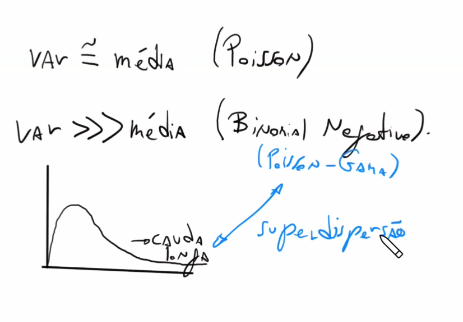 VAR ≅ média (Poisson)
VAR >>> média (Binomial Negativa).
(Poisson-Gama)
→ cauda
longa
superdispersão